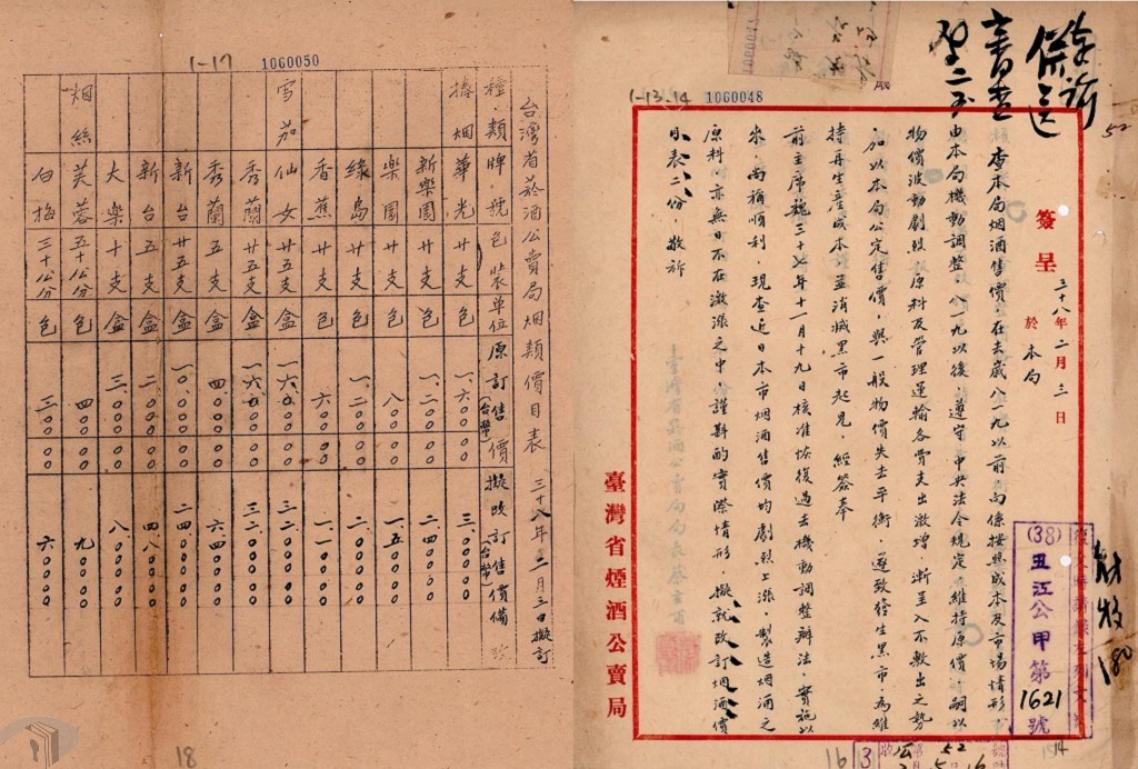 1-13.14
1060048
簽呈
三十八年二月三日
於本局
查本局烟酒售價，在去歲八一九以前向係按照成本及市場情形
由本局機動調整，八一九以後，遵守中央法令規定維持原價，嗣以
物價波動劇烈，原料及管理運輸各費支出激增，漸呈入不敷出之勢
加以本局公定售價，與一般物價失去平衡，遂致發生黑市，為維
持再生產成本，並消滅黑市起見，經簽奉
前主席魏三十七年十一月十九日核准恢復過去機動調整辦法，實施以
來，尚稱順利，現查近日本市烟酒售價均劇烈上漲，製造烟酒之
原料，亦無日不在激漲之中，謹斟酌實際情形，擬就改訂烟酒價
目表二份，敬祈
臺灣省煙酒公賣局
(38)丑江公甲第1621號
財牧
180
52
14
16
1-17
1060050
台灣省菸酒公賣局烟類價目表 三十八年二月三日擬訂
種類 牌號 包裝 單位 原訂售價(台幣) 擬改訂售價(台幣) 備
捲烟 華光 廿支 包 一、六〇〇 〇〇 三、〇〇〇 〇〇
新樂園 廿支 包 一、二〇〇 〇〇 二、四〇〇 〇〇
樂園 廿支 包 八〇〇 〇〇 一、五〇〇 〇〇
綠島 廿支 包 一、二〇〇 〇〇 二、〇〇〇 〇〇
香蕉 廿支 包 六〇〇 〇〇 一、一〇〇 〇〇
雪茄 仙女 廿五支 盒 一六、〇〇〇 〇〇 三二、〇〇〇 〇〇
秀蘭 廿五支 盒 一六、〇〇〇 〇〇 三二、〇〇〇 〇〇
秀蘭 五支 盒 四、〇〇〇 〇〇 六、四〇〇 〇〇
新台 廿五支 盒 一〇、〇〇〇 〇〇 二四、〇〇〇 〇〇
新台 五支 盒 二、〇〇〇 〇〇 四、八〇〇 〇〇
大樂 十支 盒 三、〇〇〇 〇〇 八、〇〇〇 〇〇
烟絲 芙蓉 五十公分 包 四〇〇 〇〇 九〇〇 〇〇
白梅 三十公分 包 三〇〇 〇〇 六〇〇 〇〇
18